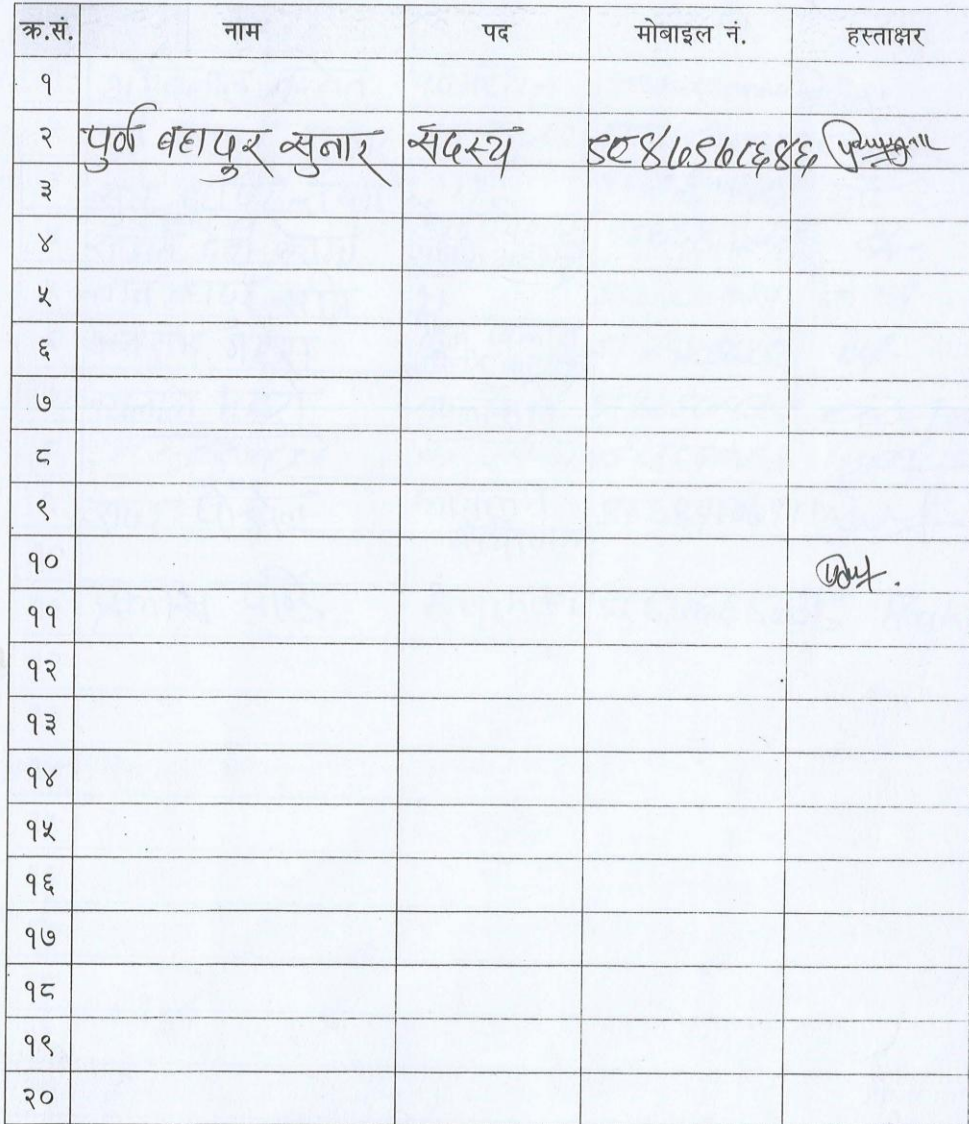 क्र.सं. नाम पद मोबाइल नं. हस्ताक्षर
१
२ पुर्ण बहादुर सुनार सदस्य
३
४
५
६
७
८
९
१०
११
१२
१३
१४
१५
१६
१७
१८
१९
२०